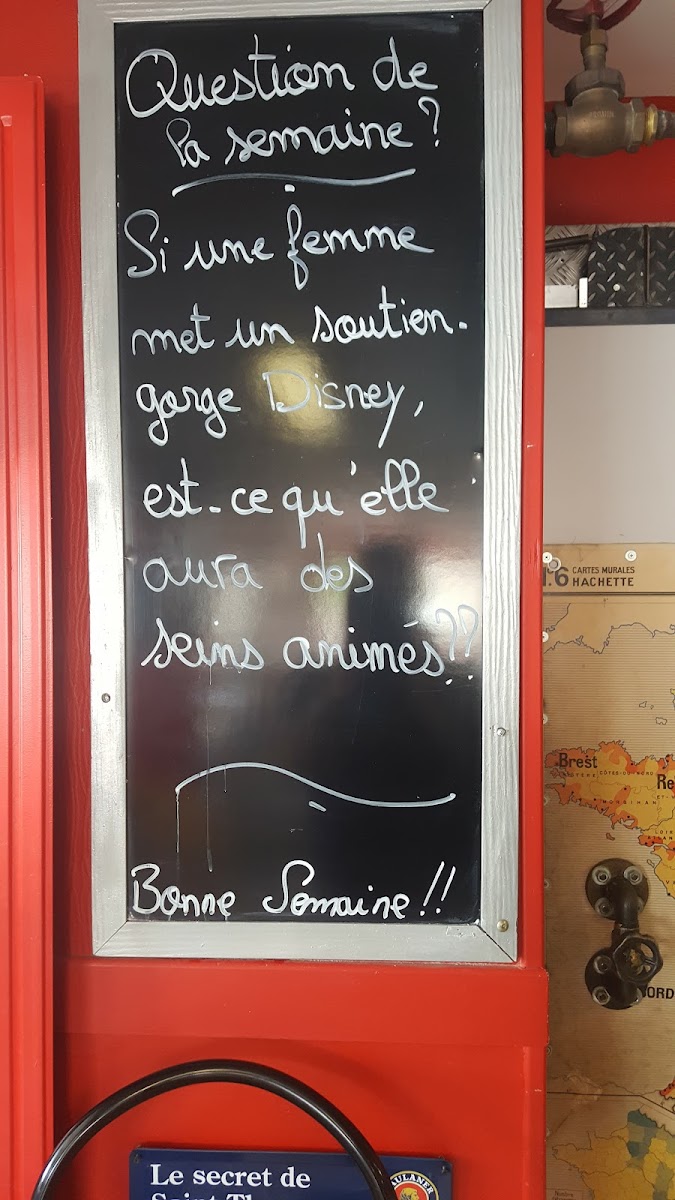 Question de
la semaine?
Si une femme
met un soutien-
gorge Disney,
est-ce qu'elle
aura des
seins animés??
Bonne Semaine!!
N.6 CARTES MURALES
HACHETTE
Brest
CÔTES-DU-NORD
MORBIHAN
Le secret de